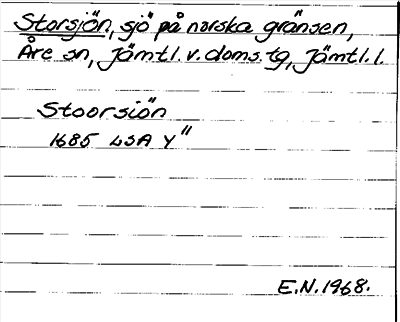 Storsjön, sjö på norska gränsen,
Åre sn, Jämtl. v. doms. tg, Jämtl. l.
Stoorsiön
1685 LSA Y"
E.N. 1968.